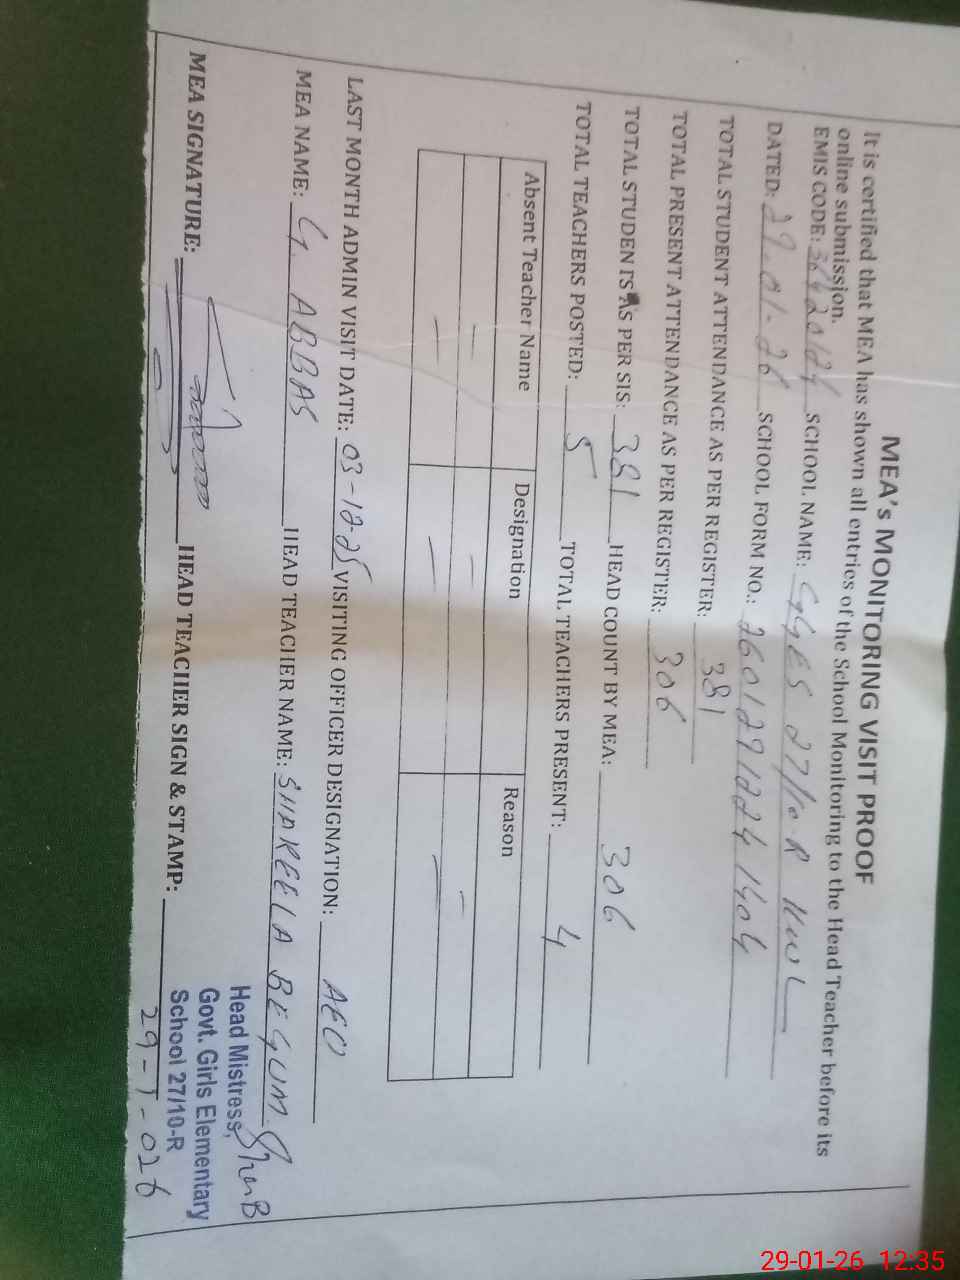 MEA's MONITORING VISIT PROOF
It is certified that MEA has shown all entries of the School Monitoring to the Head Teacher before its
online submission.
EMIS CODE: 36420124 SCHOOL NAME: GGES 27/10-R KWL
DATED: 29-01-26 SCHOOL FORM NO.: 26012912241404
TOTAL STUDENT ATTENDANCE AS PER REGISTER: 381
TOTAL PRESENT ATTENDANCE AS PER REGISTER: 306
TOTAL STUDENTS AS PER SIS: 381 HEAD COUNT BY MEA: 306
TOTAL TEACHERS POSTED: 5 TOTAL TEACHERS PRESENT: 4
Absent Teacher Name Designation Reason
— — —
— — —
LAST MONTH ADMIN VISIT DATE: 03-12-25 VISITING OFFICER DESIGNATION: AEO
MEA NAME: G. ABBAS HEAD TEACHER NAME: SHAKEELA BEGUM
MEA SIGNATURE: HEAD TEACHER SIGN & STAMP:
Head Mistress,
Govt. Girls Elementary
School 27/10-R
29-1-026
29-01-26 12:35